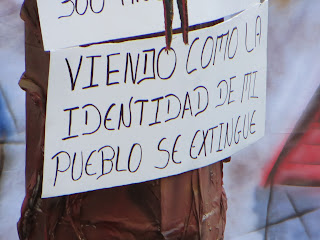 300
VIENDO COMO LA
IDENTIDAD DE MI
PUEBLO SE EXTINGUE